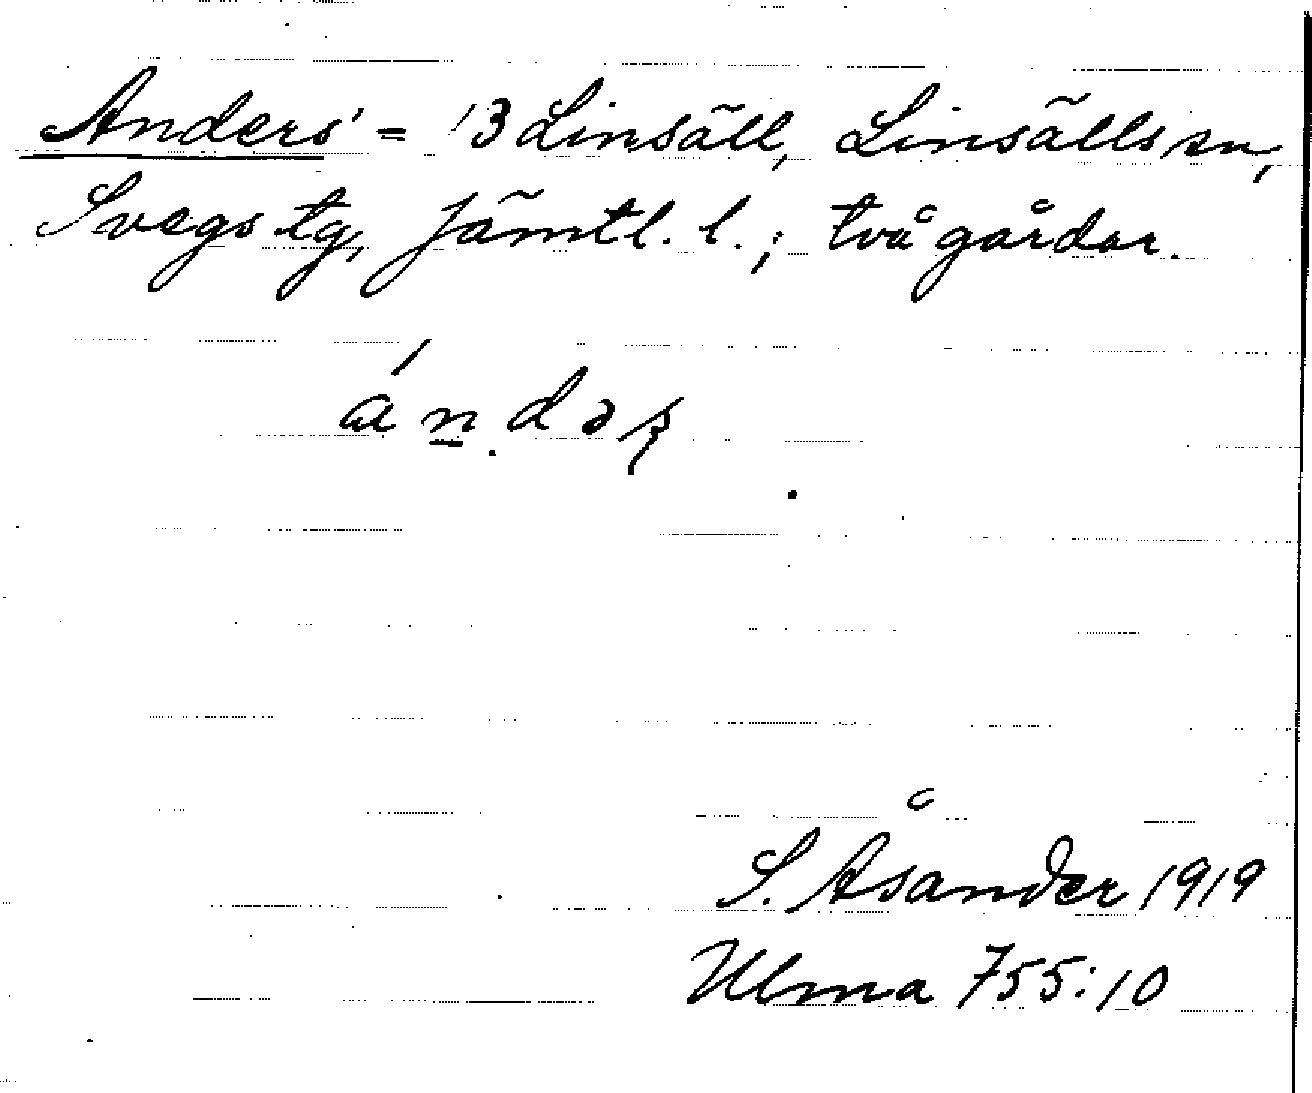 Anders' = '3 Linsäll, Linsälls sn,
Svegs tg, Jämtl. l.; två gårdar.
S. Åsander 1919
Ulma 755:10